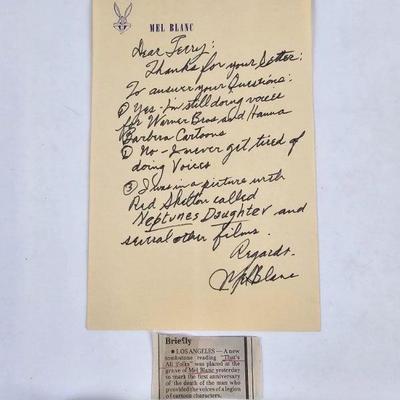 MEL BLANC
Dear Terry:
Thanks for your letter:
To answer your Questions:
① Yes - I'm still doing voices
for Warner Bros and Hanna
Barbera Cartoons
① No - I never get tired of
doing Voices
③ I was in a picture with
Red Skelton called
Neptunes Daughter and
several other films.
Regards,
Mel Blanc
Briefly
● LOS ANGELES — A new
tombstone reading "That's
All Folks" was placed at the
grave of Mel Blanc yesterday
to mark the first anniversary
of the death of the man who
provided the voices of a legion
of cartoon characters.